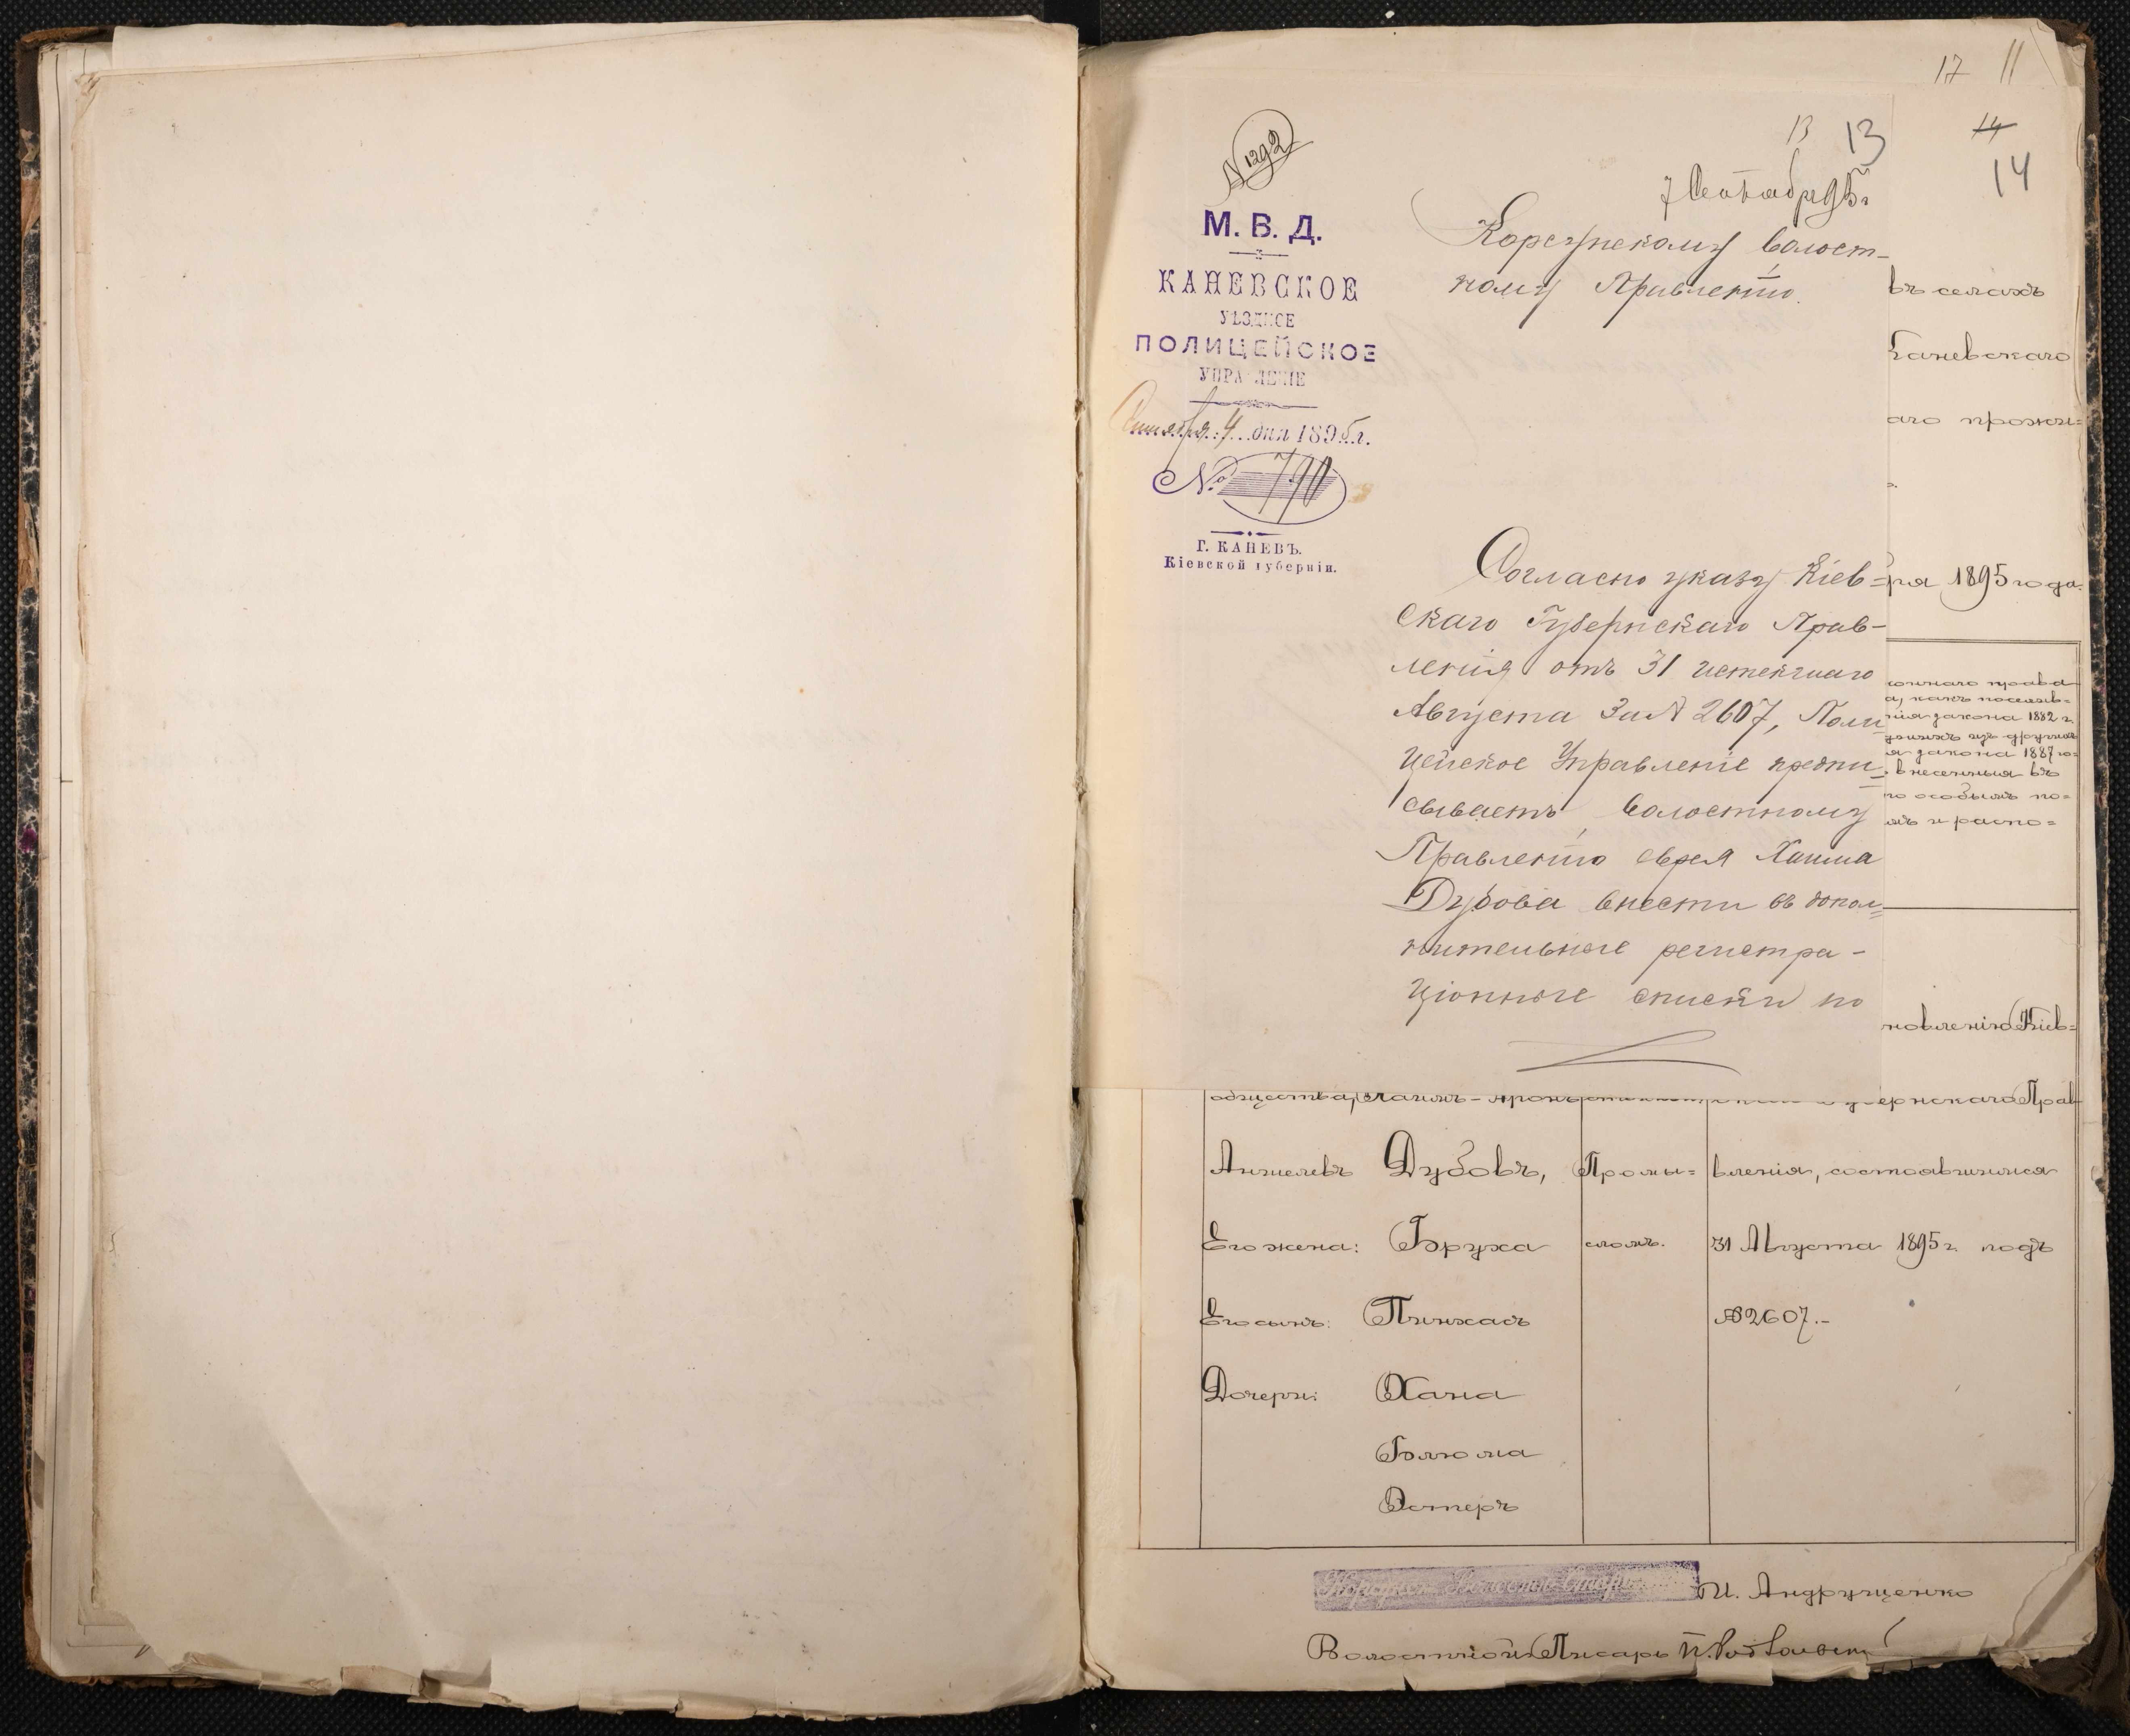 17 11
14
14
13 13
N 1292
7 Сентября 95 г
М. В. Д.
КАНЕВСКОЕ
УѢЗДНОЕ
ПОЛИЦЕЙСКОЕ
УПРАВЛЕНІЕ
Сентября 4 дня 1895 г.
№ 790
Г. КАНЕВЪ.
Кіевской губерніи.
Корсунскому Волост-
ному Правленію.
Согласно указу Кіев-
скаго Губернскаго Прав-
ленія отъ 31 истекшаго
Августа за № 2607, Поли
цейское Управленіе предпи-
сываетъ Волостному
Правленію еврея Хаима
Дубова внести въ допол=
нительные регистра-
ціонные списки по
въ селахъ
Каневскаго
аго прожи=
ря 1895 года.
коннаго права
а, какъ поселив=
нія закона 1882 г.
ихъ изъ другихъ
я закона 1887 го=
внесенныя въ
по особымъ по=
мъ и распо=
новленію Кіев=
общества, Хаимъ-Аронъ губернскаго Прав
Анжелевъ Дубовъ, Промы= вленія, состоявшимся
Его жена: Бруха сломъ. 31 Августа 1895 г. подъ
Его сынъ: Пинхасъ № 2607.-
Дочери: Хана
Блюма
Эстеръ
Корсунск. Волостн. Старшина И. Андрущенко
Волостной Писарь